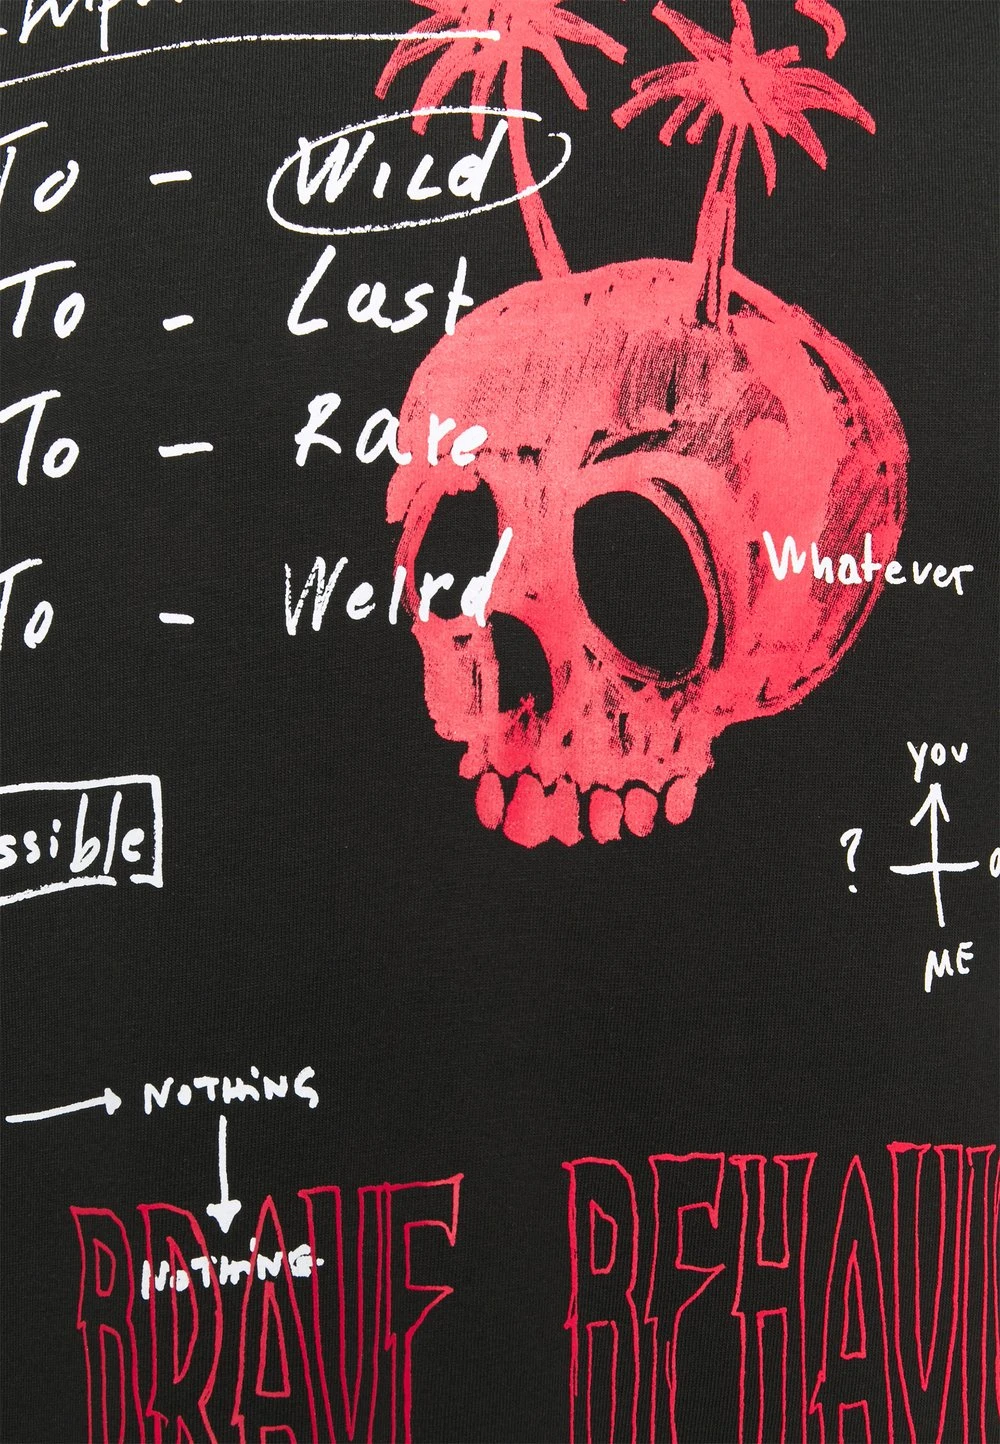 To - Wild
To - Last
To - Rare
To - Weird
Whatever
YOU
ssible
?
ME
NOTHING
NOTHING
BRAVE BEHAVI